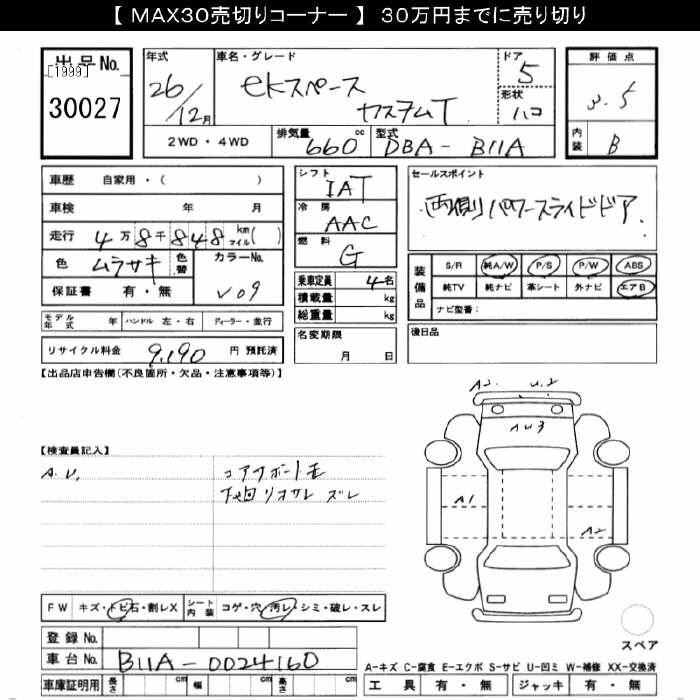 【 MAX30売切りコーナー 】 30万円までに売り切り
出品No.
[1999]
30027
年式
26/12月
車名・グレード
eKスペース
カスタムT
ドア
5
形状
ハコ
評価点
3.5
内装
B
2WD・4WD
排気量
660cc
型式
DBA-B11A
車歴 自家用・( )
車検 年 月
走行 4万8千848 km マイル( )
色 ムラサキ 色替
カラーNo.
V09
保証書 有・無
モデル年式 年 ハンドル 左・右 ディーラー・並行
リサイクル料金 9,190 円 預託済
シフト
IAT
冷房
AAC
燃料
G
乗車定員 4名
積載量 kg
総重量 kg
名変期限
月 日
セールスポイント
両側パワースライドドア
装備品
S/R 純A/W P/S P/W ABS
純TV 純ナビ 革シート 外ナビ エアB
ナビ型番:
後日品
【出品店申告欄(不良箇所・欠品・注意事項等)】
【検査員記入】
A.U,
コアサポート
下廻り ズレ
A2. U.2
AU3
A1
A2
スペア
FW キズ・トビ石・割レX シート内装 コゲ・穴・汚レ・シミ・破レ・スレ
登録No.
車台No. B11A-0024160
車庫証明用 長さ cm 幅 cm 高さ cm
A-キズ C-腐食 E-エクボ S-サビ U-凹ミ W-補修 XX-交換済
工具 有・無 ジャッキ 有・無